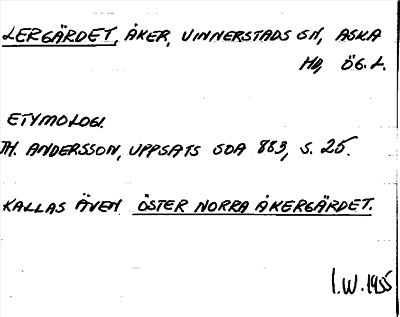 LERGÄRDET, ÅKER, VINNERSTADS SN, ASKA
HD, ÖG. L.
ETYMOLOGI.
TH. ANDERSSON, UPPSATS SOA 883, S. 25.
KALLAS ÄVEN ÖSTER NORRA ÅKERGÄRDET.
I.W. 1955